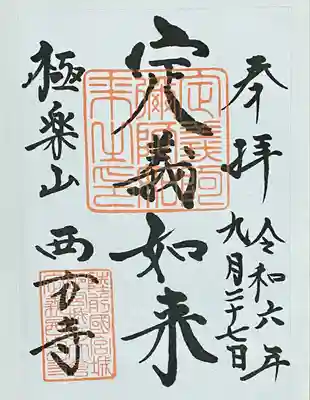 奉拝
令和六年
九月二十七日
定義如来
極楽山
西方寺